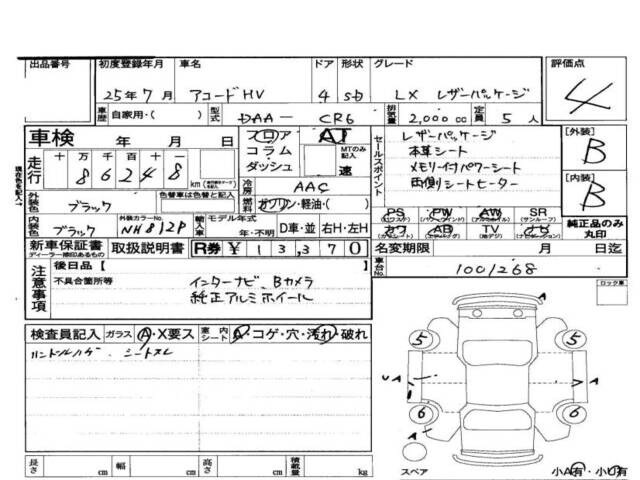 出品番号 初度登録年月 車名 ドア 形状 グレード 評価点
25年7月 アコードHV 4 SD LX レザーパッケージ 4
車歴 自家用・( ) 型式 DAA-CR6 排気量 2,000cc 定員 5人
車検 年 月 日 フロア AT セールスポイント レザーパッケージ [外装] B
走行 十万千百十一 コラム MTのみ記入 本革シート
86248 km ダッシュ 速 メモリー付パワーシート
現在色を記入→ 冷房 AAC 両側シートヒーター [内装] B
外装色 ブラック 色替車は色替と記入 燃料 ガソリン・軽油・( )
内装色 ブラック 外装カラーNo. NH812P 輸入車 モデル年式 年・不明 D車・並 右H・左H
PS PW AW SR
カワ AB TV ナビ 純正品のみ丸印
新車保証書 ディーラー捺印あるもの 取扱説明書 R券 ¥13,370 名変期限 月 日迄
注意事項 後日品【 】 車台No. 1001268
不具合箇所等 インターナビ、Bカメラ ロック車
純正アルミホイール
検査員記入 ガラス A・X要ス 室内シート A・コゲ・穴・汚れ・破れ
ハンドルハゲ. シートスレ
5 5
UA A
6 6
A
長さ cm 幅 cm 高さ cm 積載量 kg スペア 小A有・小U有